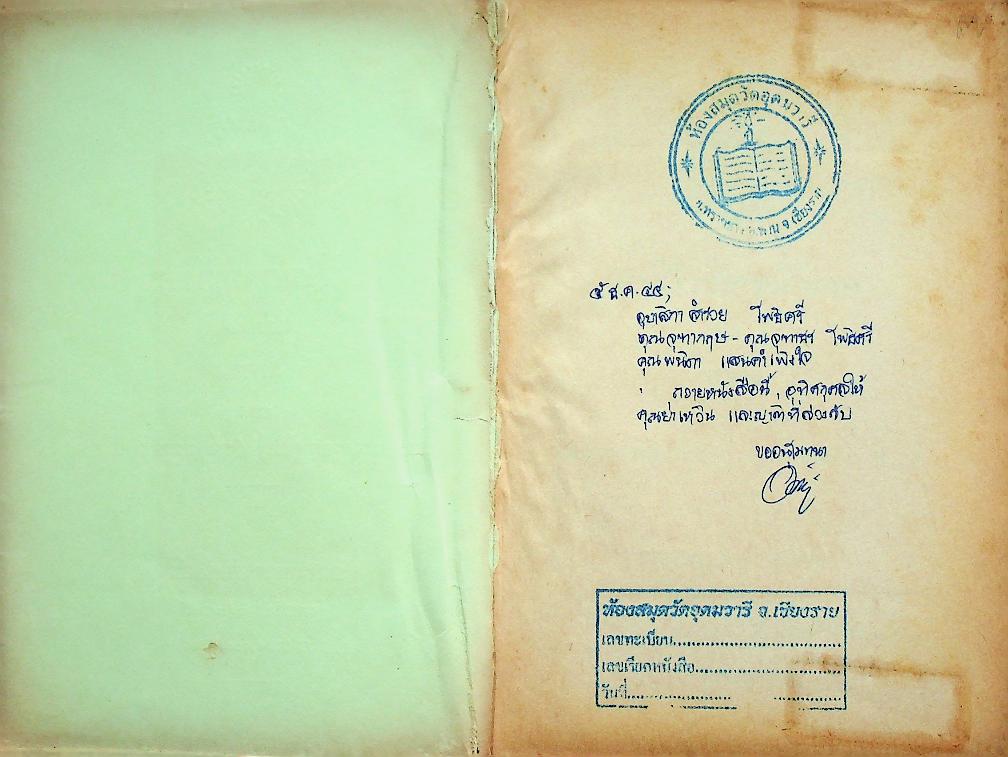 ห้องสมุดวัดอุดมวารี
จ.เชียงราย
๕ ธ.ค. ๔๔;
อุบาสิกา สำรวย โพธิศรี
คุณจุฑากฤษ - คุณจุฑาธร โพธิศรี
คุณพนิดา แสนคำเพิงใจ
ถวายหนังสือนี้, อุทิศกุศลให้
คุณย่าเหวิน และญาติที่ล่วงลับ
ขออนุโมทนา
ห้องสมุดวัดอุดมวารี จ.เชียงราย
เลขทะเบียน
เลขเรียกหนังสือ
วันที่